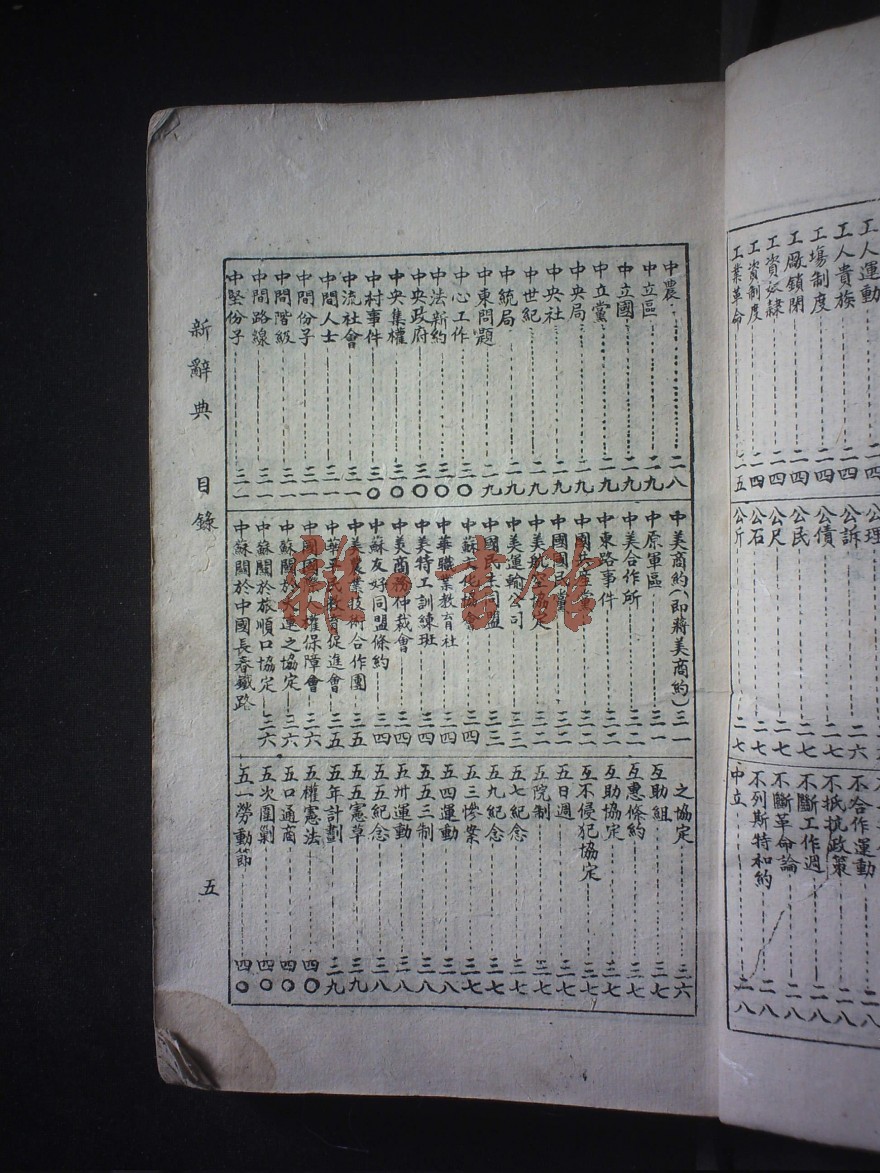 工人運動……二四
工人貴族……二四
工場制度……二四
工廠鎖閉……二四
工資奴隸……二四
工資制度……二四
工業革命……二五
公理
公訴……二六
公債……二七
公民……二七
公尺……二七
公石……二七
公斤……二七
不合作運動……二八
不抵抗政策……二八
不斷工作週……二八
不斷革命論……二八
不列斯特和約……二八
中立……二八
中農……二八
中立區……二九
中立國……二九
中立黨……二九
中央局……二九
中央社……二九
中世紀……二九
中統局……二九
中東問題……二九
中心工作……三〇
中法新約……三〇
中央政府……三〇
中央集權……三〇
中村事件……三〇
中流社會……三一
中間人士……三一
中間份子……三一
中間階級……三一
中間路線……三一
中堅份子……三一
中美商約(即蔣美商約)三一
中原軍區……三一
中美合作所……三二
中東路事件……三二
中國共產黨……三二
中國國民黨……三二
中美航空協定……三二
中美運輸公司……三三
中國民主同盟……三三
中蘇文化協會……三四
中華職業教育社……三四
中美特工訓練班……三四
中美商務仲裁會……三四
中蘇友好同盟條約……三四
中美農業技術合作團……三五
中華平民教育促進會……三五
中國國際人權保障會……三六
中蘇關於大連之協定……三六
中蘇關於旅順口協定……三六
中蘇關於中國長春鐵路
之協定……三六
互助組……三七
互惠條約……三七
互助協定……三七
互不侵犯協定……三七
五日週……三七
五院制……三七
五七紀念……三七
五九紀念……三七
五三慘案……三七
五四運動……三八
五五三制……三八
五卅運動……三八
五五紀念……三八
五五憲草……三九
五年計劃……三九
五權憲法……四〇
五口通商……四〇
五次圍剿……四〇
五一勞動節……四〇
新辭典 目錄 五
雜·书馆